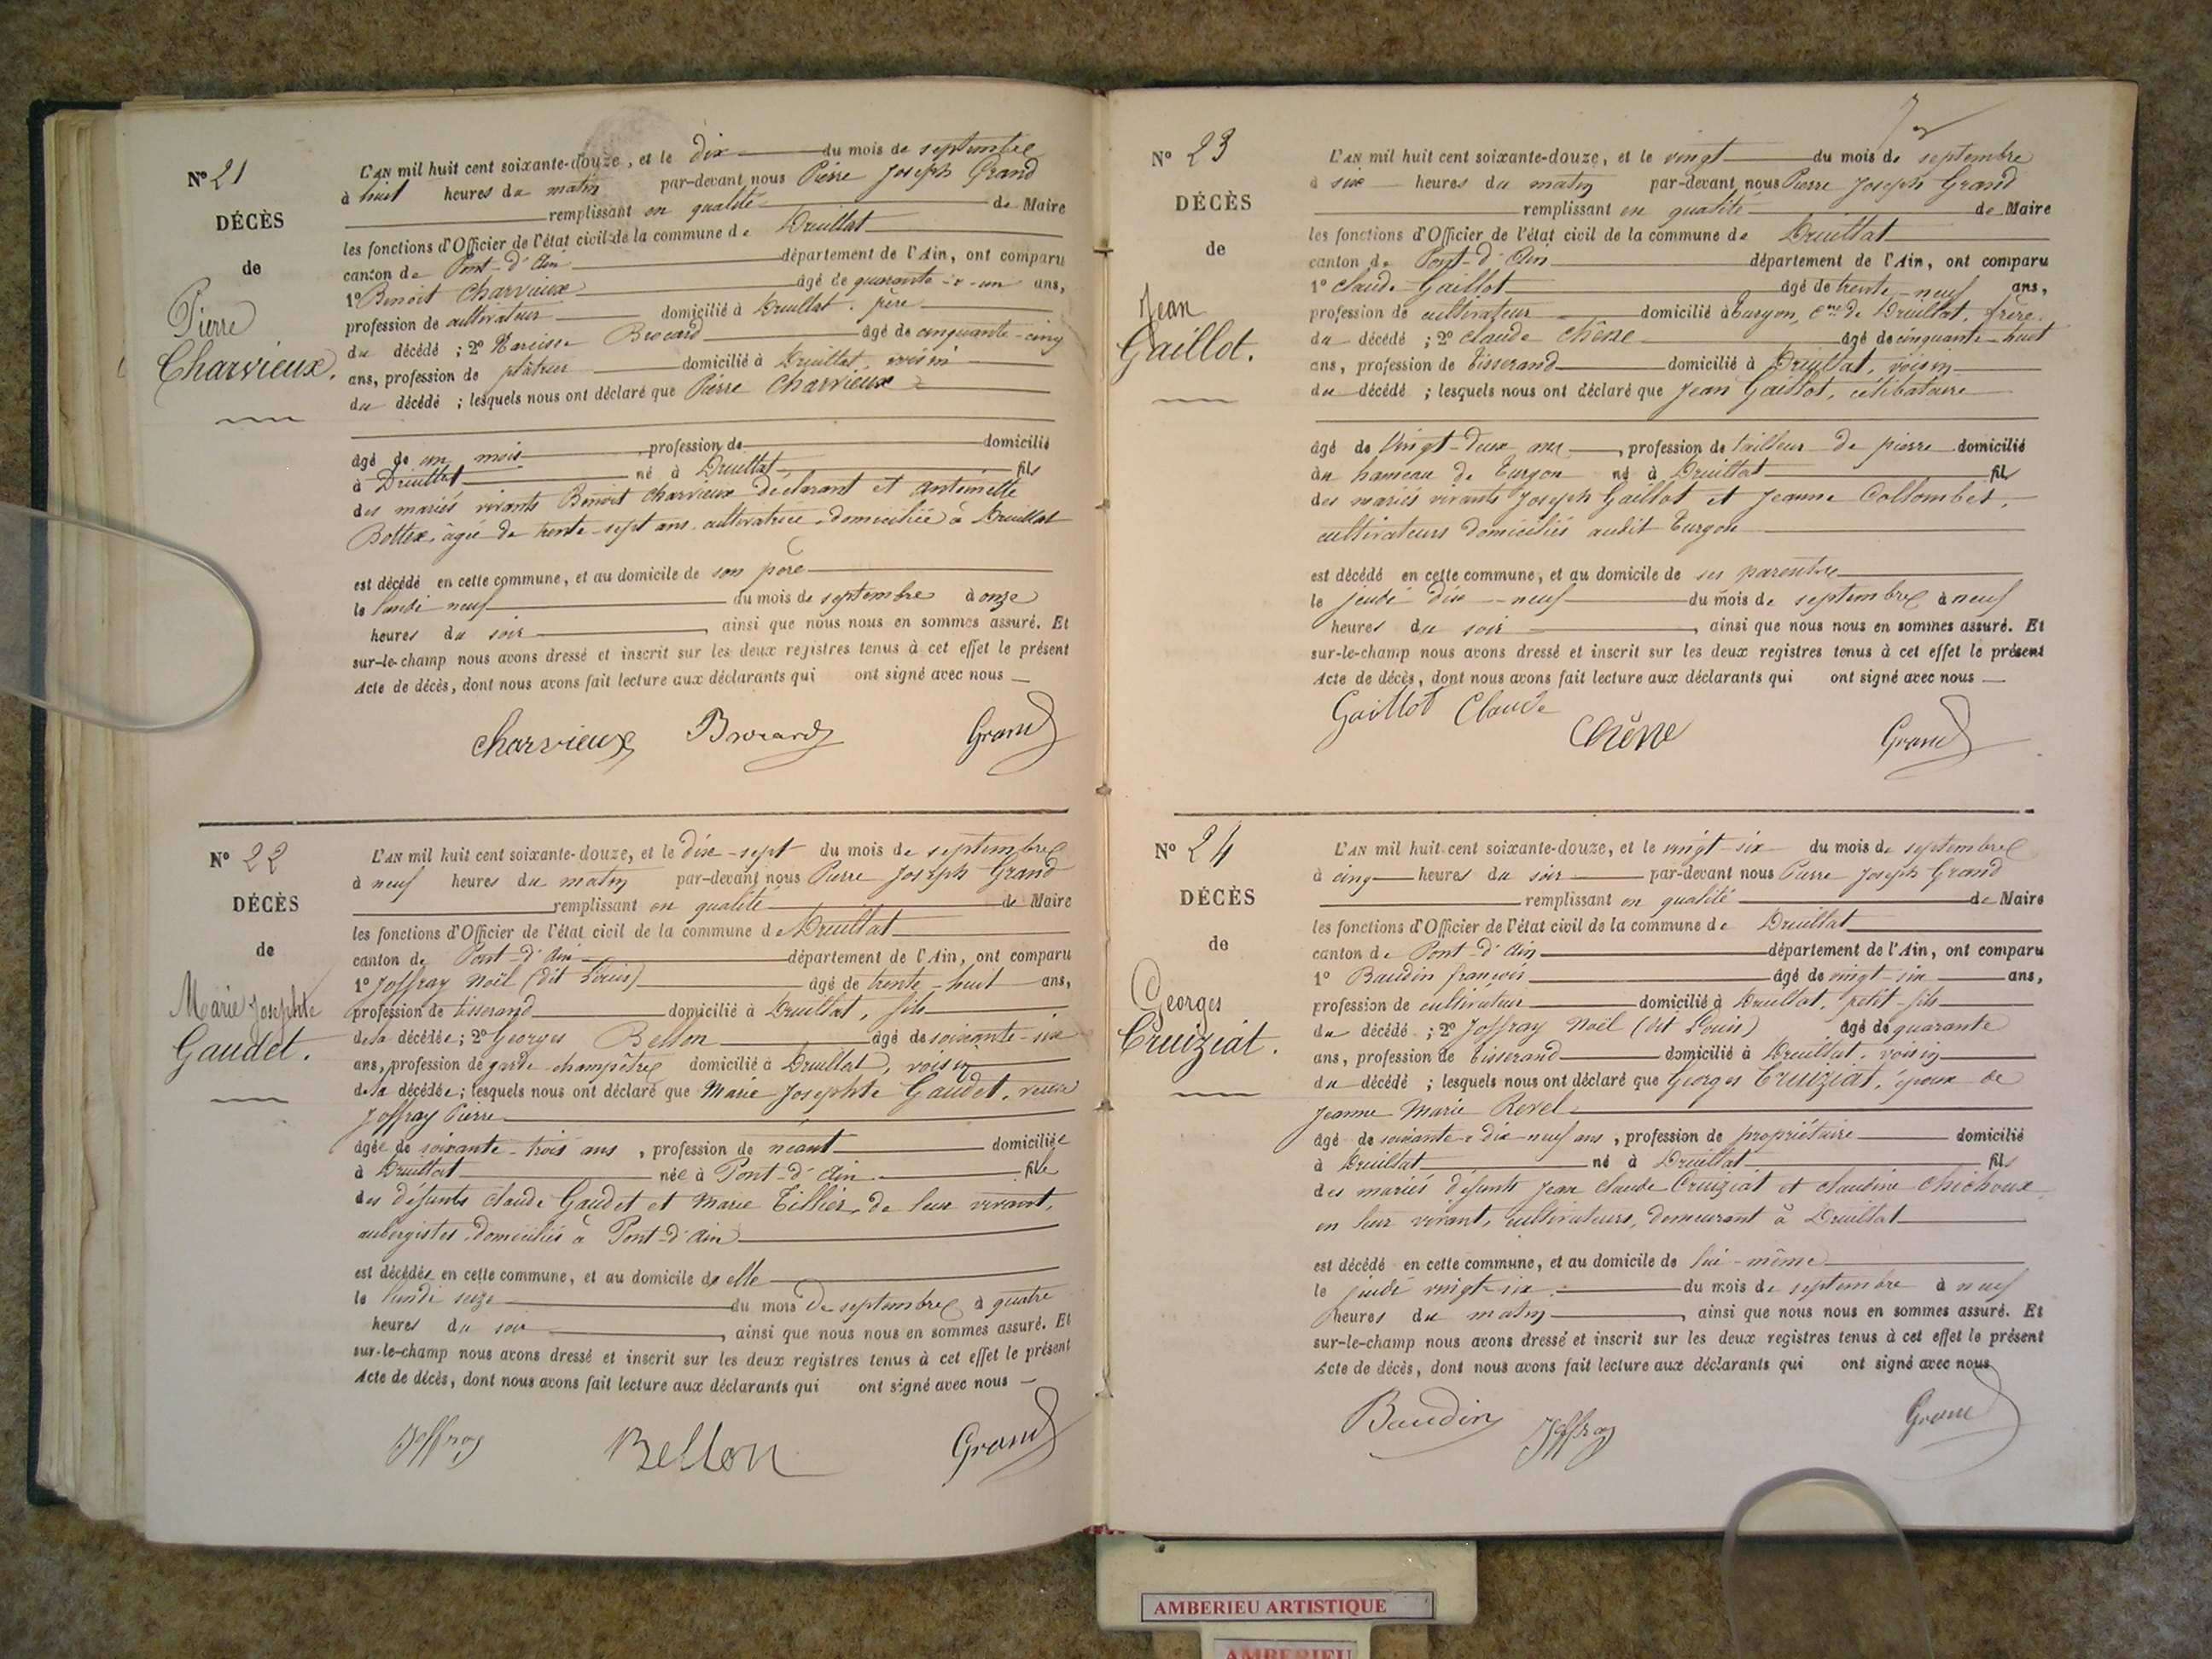 N° 21
DÉCÈS
de
Pierre
Charvieux.
L'AN mil huit cent soixante-douze, et le dix du mois de septembre
à huit heures du matin par-devant nous Pierre Joseph Grand
remplissant en qualité de Maire
les fonctions d'Officier de l'état civil de la commune de Druillat
canton de Pont-d'Ain département de l'Ain, ont comparu
1° Benoit Charvieux âgé de quarante-e-un ans,
profession de cultivateur domicilié à Druillat, père
du décédé ; 2° Narcisse Brocard âgé de cinquante-cinq
ans, profession de plâtrier domicilié à Druillat, voisin
du décédé ; lesquels nous ont déclaré que Pierre Charvieux
âgé de un mois, profession de domicilié
à Druillat né à Druillat fils
des mariés vivants Benoit Charvieux déclarant et Antoinette
Bottex, âgée de trente-sept ans, cultivatrice, domiciliée à Druillat
est décédé en cette commune, et au domicile de son père
le lundi neuf du mois de septembre à onze
heures du soir, ainsi que nous nous en sommes assuré. Et
sur-le-champ nous avons dressé et inscrit sur les deux registres tenus à cet effet le présent
Acte de décès, dont nous avons fait lecture aux déclarants qui ont signé avec nous
Charvieux Brocard Grand
N° 22
DÉCÈS
de
Marie Josephte
Gaudet.
L'AN mil huit cent soixante-douze, et le dix-sept du mois de septembre
à neuf heures du matin par-devant nous Pierre Joseph Grand
remplissant en qualité de Maire
les fonctions d'Officier de l'état civil de la commune de Druillat
canton de Pont-d'Ain département de l'Ain, ont comparu
1° Joffray Noël (dit Louis) âgé de trente-huit ans,
profession de tisserand domicilié à Druillat, fils
de la décédée ; 2° Georges Bellon âgé de soixante-six
ans, profession de garde champêtre domicilié à Druillat, voisin
de la décédée ; lesquels nous ont déclaré que Marie Josephte Gaudet, veuve
Joffray Pierre
âgée de soixante-trois ans, profession de néant domiciliée
à Druillat née à Pont-d'Ain fille
des défunts Claude Gaudet et Marie Tillier, de leur vivant,
aubergistes, domiciliés à Pont-d'Ain
est décédée en cette commune, et au domicile de elle
le lundi seize du mois de septembre à quatre
heures du soir, ainsi que nous nous en sommes assuré. Et
sur-le-champ nous avons dressé et inscrit sur les deux registres tenus à cet effet le présent
Acte de décès, dont nous avons fait lecture aux déclarants qui ont signé avec nous
Joffray Bellon Grand
N° 23
DÉCÈS
de
Jean
Gaillot.
L'AN mil huit cent soixante-douze, et le vingt du mois de septembre
à six heures du matin par-devant nous Pierre Joseph Grand
remplissant en qualité de Maire
les fonctions d'Officier de l'état civil de la commune de Druillat
canton de Pont-d'Ain département de l'Ain, ont comparu
1° Claude Gaillot âgé de trente-neuf ans,
profession de cultivateur domicilié à Turgon, cne de Druillat, frère
du décédé ; 2° Claude Chêne âgé de cinquante-huit
ans, profession de Tisserand domicilié à Druillat, voisin
du décédé ; lesquels nous ont déclaré que Jean Gaillot, célibataire
âgé de vingt-deux ans, profession de tailleur de pierre domicilié
au hameau de Turgon né à Druillat fils
des mariés vivants Joseph Gaillot et Jeanne Collombet,
cultivateurs domiciliés audit Turgon
est décédé en cette commune, et au domicile de ses parents
le jeudi dix-neuf du mois de septembre à neuf
heures du soir, ainsi que nous nous en sommes assuré. Et
sur-le-champ nous avons dressé et inscrit sur les deux registres tenus à cet effet le présent
Acte de décès, dont nous avons fait lecture aux déclarants qui ont signé avec nous
Gaillot Claude Chêne Grand
N° 24
DÉCÈS
de
Georges
Cruiziat.
L'AN mil huit cent soixante-douze, et le vingt-six du mois de septembre
à cinq heures du soir par-devant nous Pierre Joseph Grand
remplissant en qualité de Maire
les fonctions d'Officier de l'état civil de la commune de Druillat
canton de Pont-d'Ain département de l'Ain, ont comparu
1° Baudin françois âgé de vingt-six ans,
profession de cultivateur domicilié à Druillat, petit-fils
du décédé ; 2° Joffray Noël (dit Louis) âgé de quarante
ans, profession de Tisserand domicilié à Druillat, voisin
du décédé ; lesquels nous ont déclaré que Georges Cruiziat, époux de
Jeanne Marie Revel
âgé de soixante-dix-neuf ans, profession de propriétaire domicilié
à Druillat né à Druillat fils
des mariés défunts Jean Claude Cruiziat et Claudine Chichoux
en leur vivant, cultivateurs, demeurant à Druillat
est décédé en cette commune, et au domicile de lui-même
le jeudi vingt-six du mois de septembre à neuf
heures du matin, ainsi que nous nous en sommes assuré. Et
sur-le-champ nous avons dressé et inscrit sur les deux registres tenus à cet effet le présent
Acte de décès, dont nous avons fait lecture aux déclarants qui ont signé avec nous
Baudin Joffray Grand
AMBERIEU ARTISTIQUE
AMBERIEU